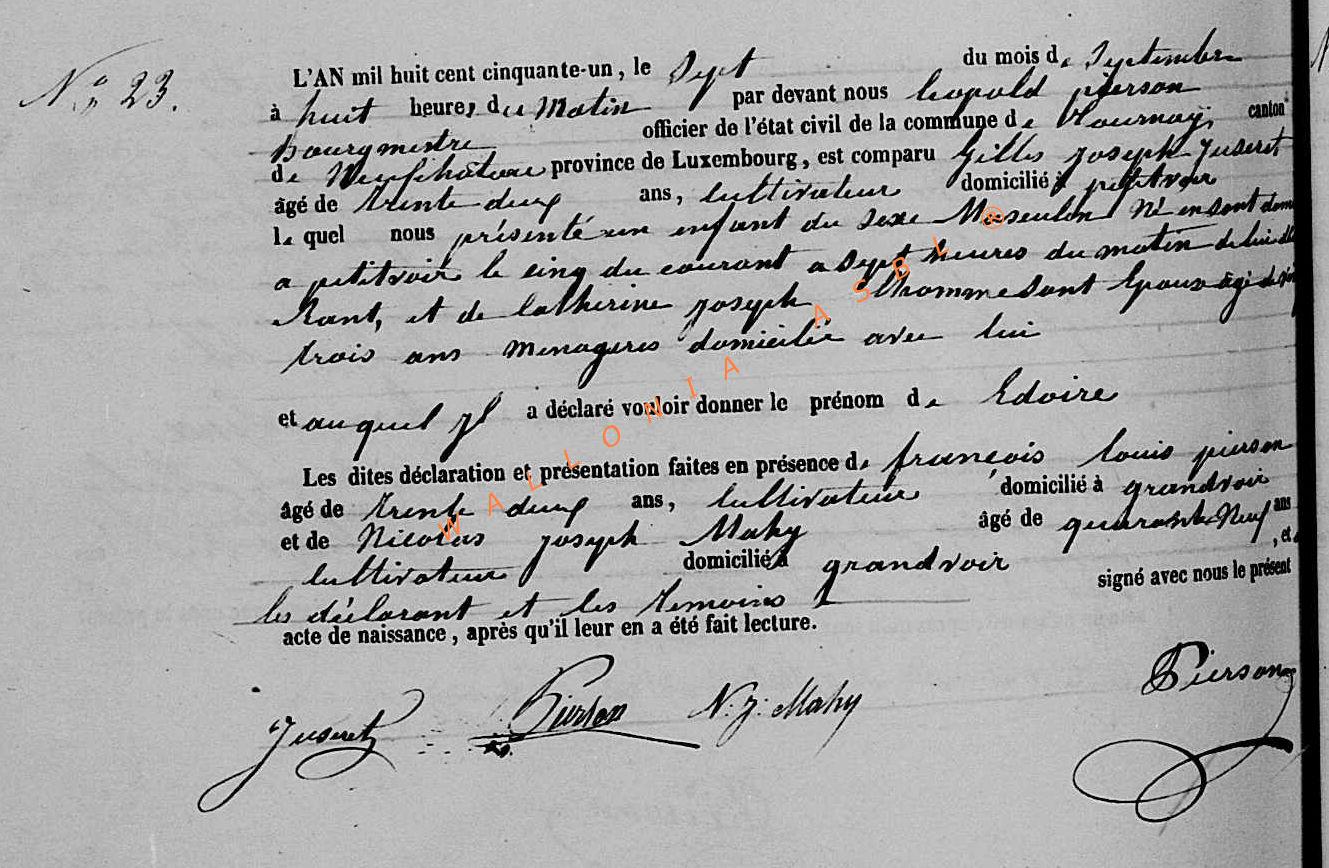 N° 23.
L'AN mil huit cent cinquante-un, le Sept du mois de Septembre
à huit heures du Matin par devant nous Leopold pierson
Bourgmestre officier de l'état civil de la commune de Tournay, canton
de Neufchâteau province de Luxembourg, est comparu Gilles joseph Juseret
âgé de trente deux ans, Cultivateur domicilié à petitvoir
le quel nous présenté un enfant du sexe Masculin Né en sont dom
a petitvoir le cinq du courant a Sept heures du matin de lui dé
Rant, et de Catherine joseph Thomme Sont Epouse âgé de
trois ans menageres domicilié avec lui
et auquel jl a déclaré vouloir donner le prénom de Edoire
Les dites déclaration et présentation faites en présence de françois Louis pierson
âgé de trente deux ans, Cultivateur domicilié à grandvoir
et de Nicolas joseph Mahy âgé de quarante-Neuf ans
Cultivateur domicilié à grandvoir , et
les déclarant et les temoins signé avec nous le présent
acte de naissance, après qu'il leur en a été fait lecture.
Juseret Pierson N. J. Mahy Pierson
WALLONIA ASBL ®